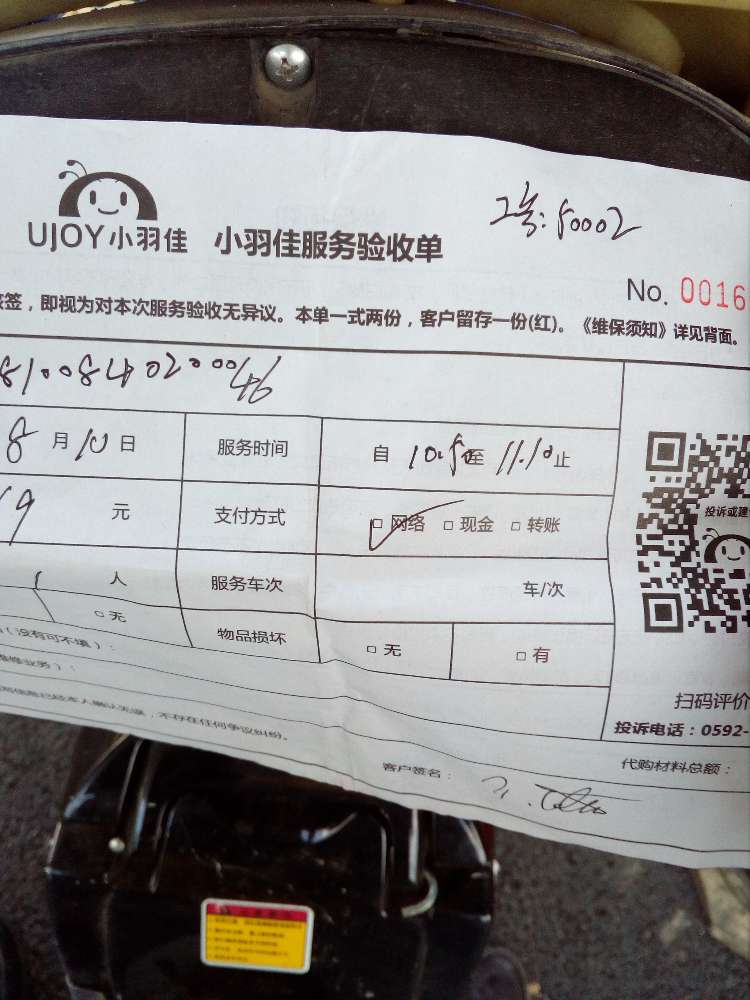 工号: 50002
UJOY小羽佳 小羽佳服务验收单
No. 0016
签，即视为对本次服务验收无异议。本单一式两份，客户留存一份(红)。《维保须知》详见背面。
8月10日 服务时间 自 10.50至 11.10止
9 元 支付方式 □网络 □现金 □转账
投诉或建
1 人 服务车次 车/次
□无 物品损坏 □无 □有
（没有可不填）：
维修业务）：
已经本人确认无误，不存在任何争议纠纷。
扫码评价
投诉电话：0592-
客户签名： 代购材料总额：